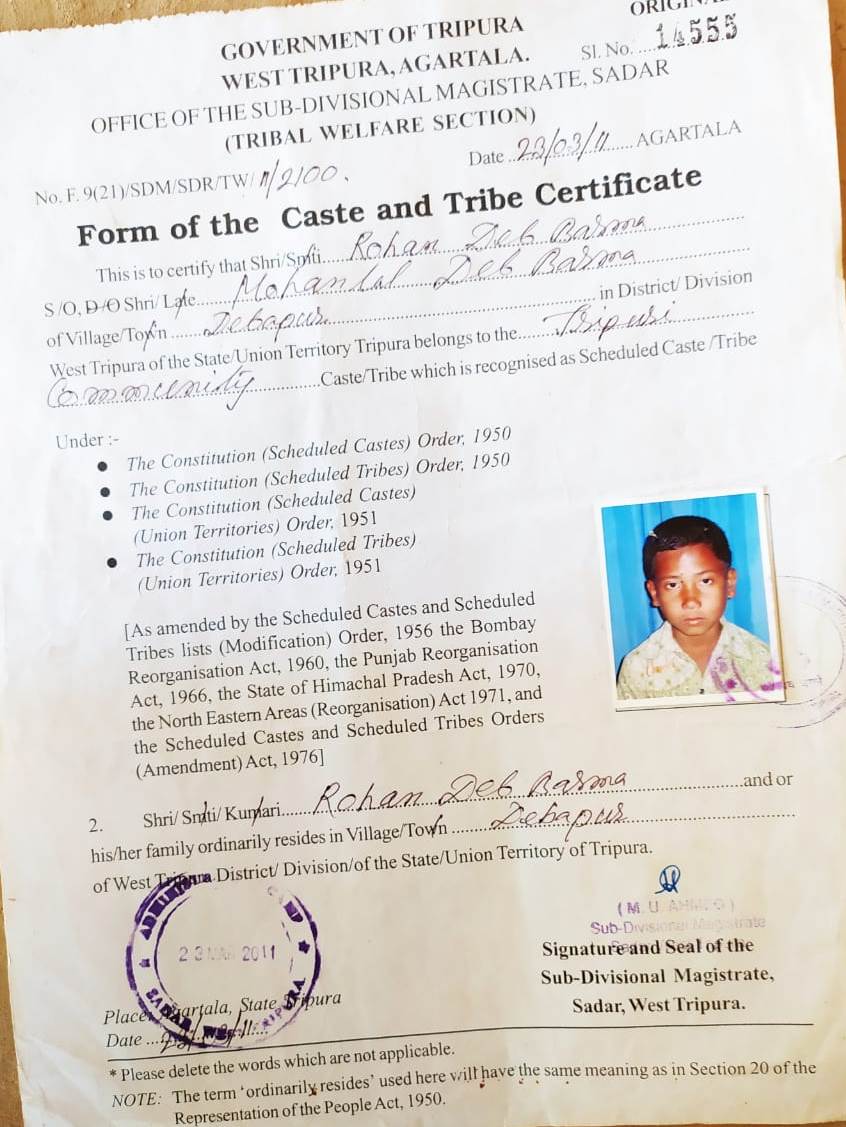 ORIGINAL
GOVERNMENT OF TRIPURA
WEST TRIPURA, AGARTALA.
Sl. No. ....14555
OFFICE OF THE SUB-DIVISIONAL MAGISTRATE, SADAR
(TRIBAL WELFARE SECTION)
No. F. 9(21)/SDM/SDR/TW/ 11/2100.
Date ..23/03/11...... AGARTALA
Form of the Caste and Tribe Certificate
This is to certify that Shri/Smti.....Rohan Deb Barma
S/O, D/O Shri/ Late........Mohanlal Deb Barma
of Village/Town ......Debapur.............. in District/ Division
West Tripura of the State/Union Territory Tripura belongs to the......Tripuri
Community..........Caste/Tribe which is recognised as Scheduled Caste /Tribe
Under :-
• The Constitution (Scheduled Castes) Order, 1950
• The Constitution (Scheduled Tribes) Order, 1950
• The Constitution (Scheduled Castes)
(Union Territories) Order, 1951
• The Constitution (Scheduled Tribes)
(Union Territories) Order, 1951
[As amended by the Scheduled Castes and Scheduled
Tribes lists (Modification) Order, 1956 the Bombay
Reorganisation Act, 1960, the Punjab Reorganisation
Act, 1966, the State of Himachal Pradesh Act, 1970,
the North Eastern Areas (Reorganisation) Act 1971, and
the Scheduled Castes and Scheduled Tribes Orders
(Amendment) Act, 1976]
2. Shri/ Smti/ Kumari......Rohan Deb Barma..............and or
his/her family ordinarily resides in Village/Town ......Debapur..............
of West Tripura District/ Division/of the State/Union Territory of Tripura.
(M. U. AHMED)
Sub-Divisional Magistrate
Signature and Seal of the
Sub-Divisional Magistrate,
Sadar, West Tripura.
23 MAR 2011
SADAR, WEST TRIPURA
Place Agartala, State Tripura
Date ...23/03/11...
* Please delete the words which are not applicable.
NOTE: The term 'ordinarily resides' used here will have the same meaning as in Section 20 of the
Representation of the People Act, 1950.